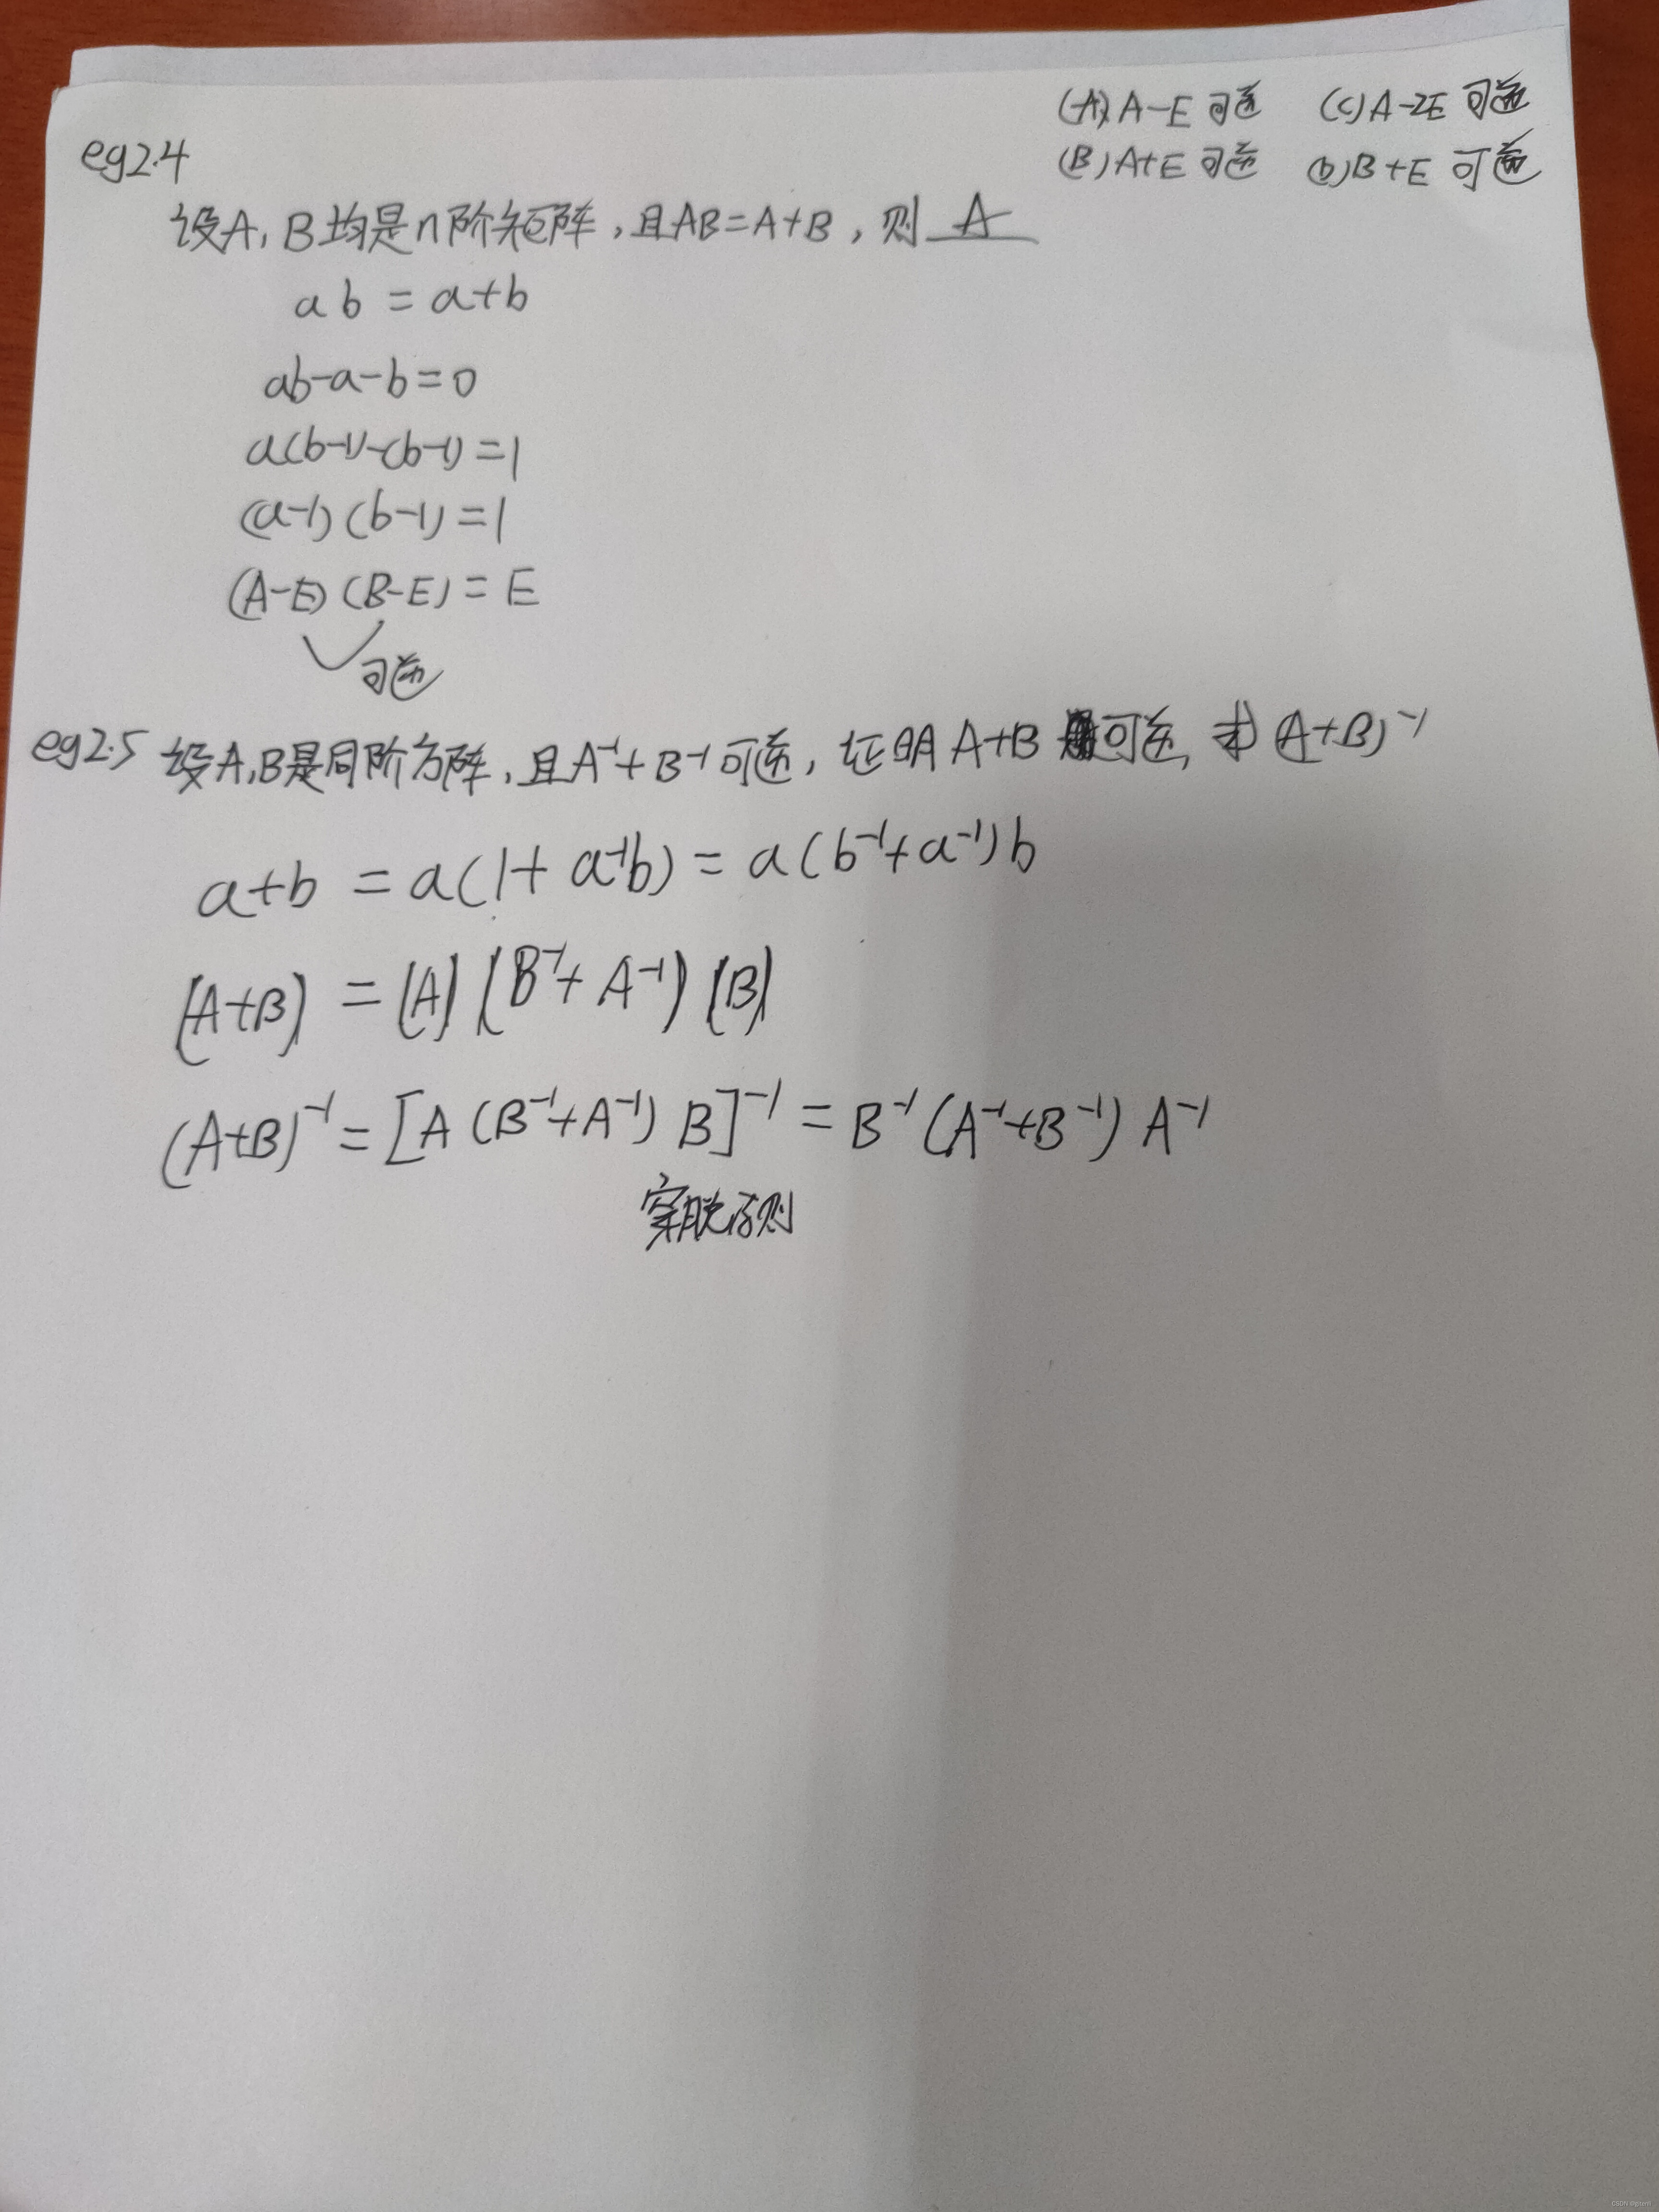 (A) A-E 可逆 (C) A-2E 可逆
(B) A+E 可逆 (D) B+E 可逆
eg2.4
设A,B均是n阶矩阵,且AB=A+B,则 A
ab = a+b
ab-a-b=0
a(b-1)-(b-1)=1
(a-1)(b-1)=1
(A-E)(B-E)=E
可逆
eg2.5 设A,B是同阶方阵,且A⁻¹+B⁻¹可逆,证明A+B可逆,求(A+B)⁻¹
a+b = a(1+a⁻¹b) = a(b⁻¹+a⁻¹)b
|A+B| = |A| |B⁻¹+A⁻¹| |B|
(A+B)⁻¹=[A(B⁻¹+A⁻¹)B]⁻¹=B⁻¹(A⁻¹+B⁻¹)A⁻¹
穿脱原则